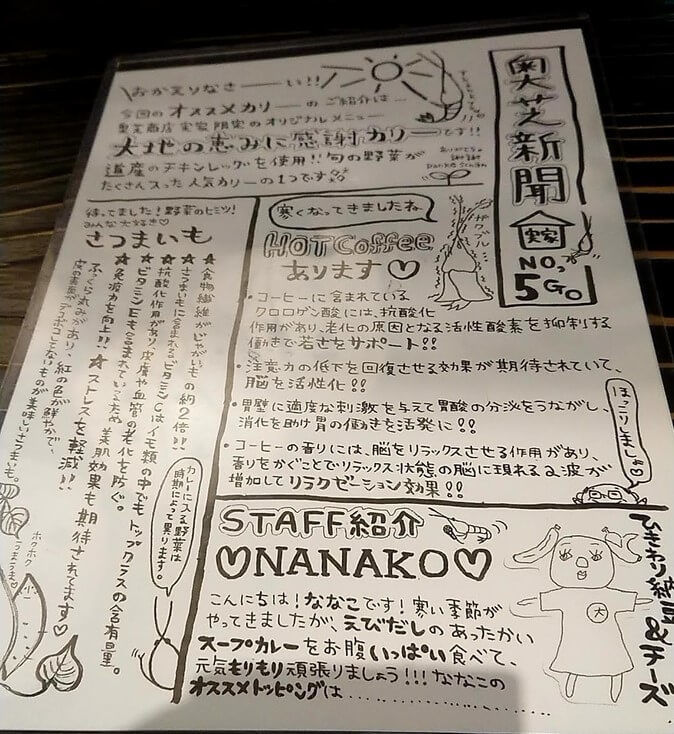 奥芝新聞
實家
NO.
5GO
おかえりなさーい!!
今回のオススメカリーのご紹介は…
奥芝商店 実家 限定のオリジナルメニュー
大地の恵みに感謝カリーです!!
道産のチキンレッグを使用!!旬の野菜が
たくさん入った人気カリーの1つです
ありがとう
謝謝
寒くなってきましたね
HOT Coffee
あります♡
・コーヒーに含まれている
クロロゲン酸には、抗酸化
作用があり、老化の原因となる活性酸素を抑制する
働きで若さをサポート!!
・注意力の低下を回復させる効果が期待されていて、
脳を活性化!!
・胃壁に適度な刺激を与えて胃酸の分泌をうながし、
消化を助け胃の働きを活発に!!
・コーヒーの香りには、脳をリラックスさせる作用があり、
香りをかぐことでリラックス状態の脳に現れるα波が
増加してリラクゼーション効果!!
ほっこりしましょ♡
待ってました!野菜のヒミツ!
みんな大好き♡
さつまいも
★食物繊維がじゃがいもの約2倍!!
★さつまいもに含まれるビタミンCはイモ類の中でもトップクラスの含有量。
抗酸化作用があり、皮膚や血管の老化を防ぐ。
★ビタミンEも含まれているため美肌効果も期待されてます♡
★免疫力を向上!! ★ストレスを軽減!!
ふっくら丸みがあり、紅の色が鮮やかで、
皮の表面がデコボコしてないものが美味しいさつまいも。
カレーに入る野菜は
時期によって異ります。
ホクホク
うまうま♡
STAFF紹介
♡NANAKO♡
こんにちは!ななこです!寒い季節が
やってきましたが、えびだしのあったかい
スープカレーをお腹いっぱい食べて、
元気もりもり頑張りましょう!!!ななこの
オススメトッピングは……………
大
ひきわり納豆&チーズ